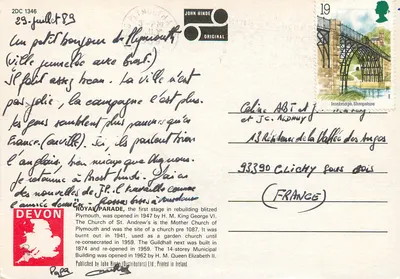 2DC 1346
29 juillet 89
Un petit bonjour de Plymouth
(ville jumelée avec Brest)
Il fait assez beau. La ville n'est
pas jolie, la campagne l'est plus.
les gens semblent plus pauvres qu'en
France. Ici, ils parlent bien
l'anglais, bien mieux que
Je retourne à Brest lundi. J'ai eu
des nouvelles de J.P. Il travaille comme
l'année dernière. Grosses bises
Papa
JOHN HINDE
ORIGINAL
19
Ironbridge, Shropshire
Céline
et J.C.
13 Résidence de la Vallée des Anges
93390 CLICHY SOUS BOIS
(FRANCE)
DEVON
ROYAL PARADE, the first stage in rebuilding blitzed
Plymouth, was opened in 1947 by H. M. King George VI.
The Church of St. Andrew's is the Mother Church of
Plymouth and was the site of a church pre 1087. It was
burnt out in 1941, used as a garden church until
re-consecrated in 1959. The Guildhall next was built in
1874 and re-opened in 1959. The 14-storey Municipal
Building was opened in 1962 by H. M. Queen Elizabeth II.
Published by John Hinde (Distributors) Ltd. Printed in Ireland